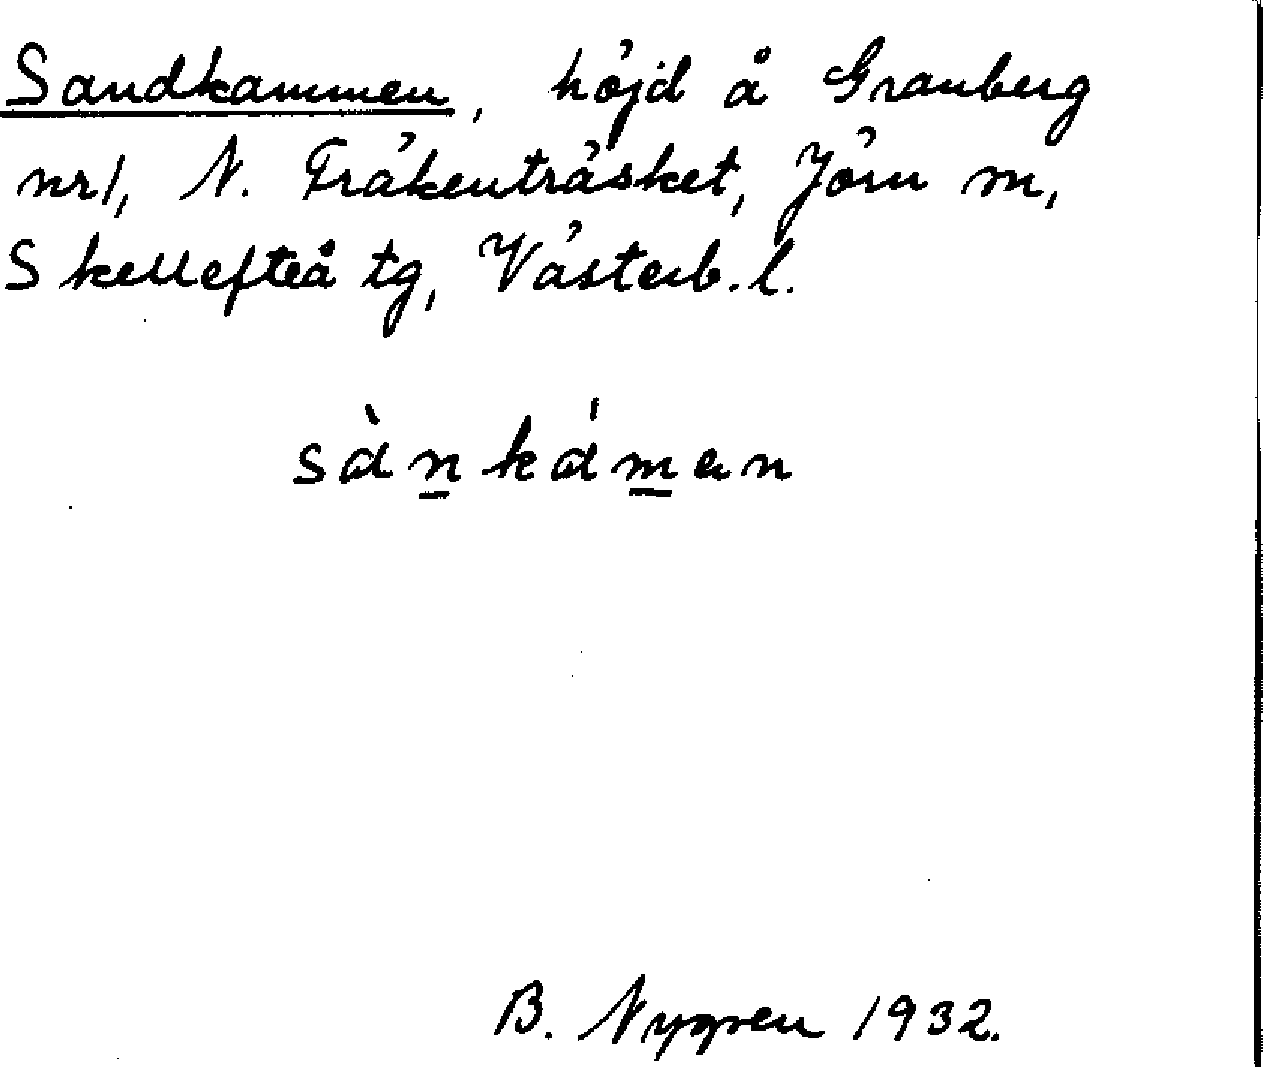 Sandkammen, höjd å Granberg
nr 1, N. Fräkenträsket, Jörn sn,
Skellefteå tg, Västerb. l.
sànkámen
B. Nygren 1932.